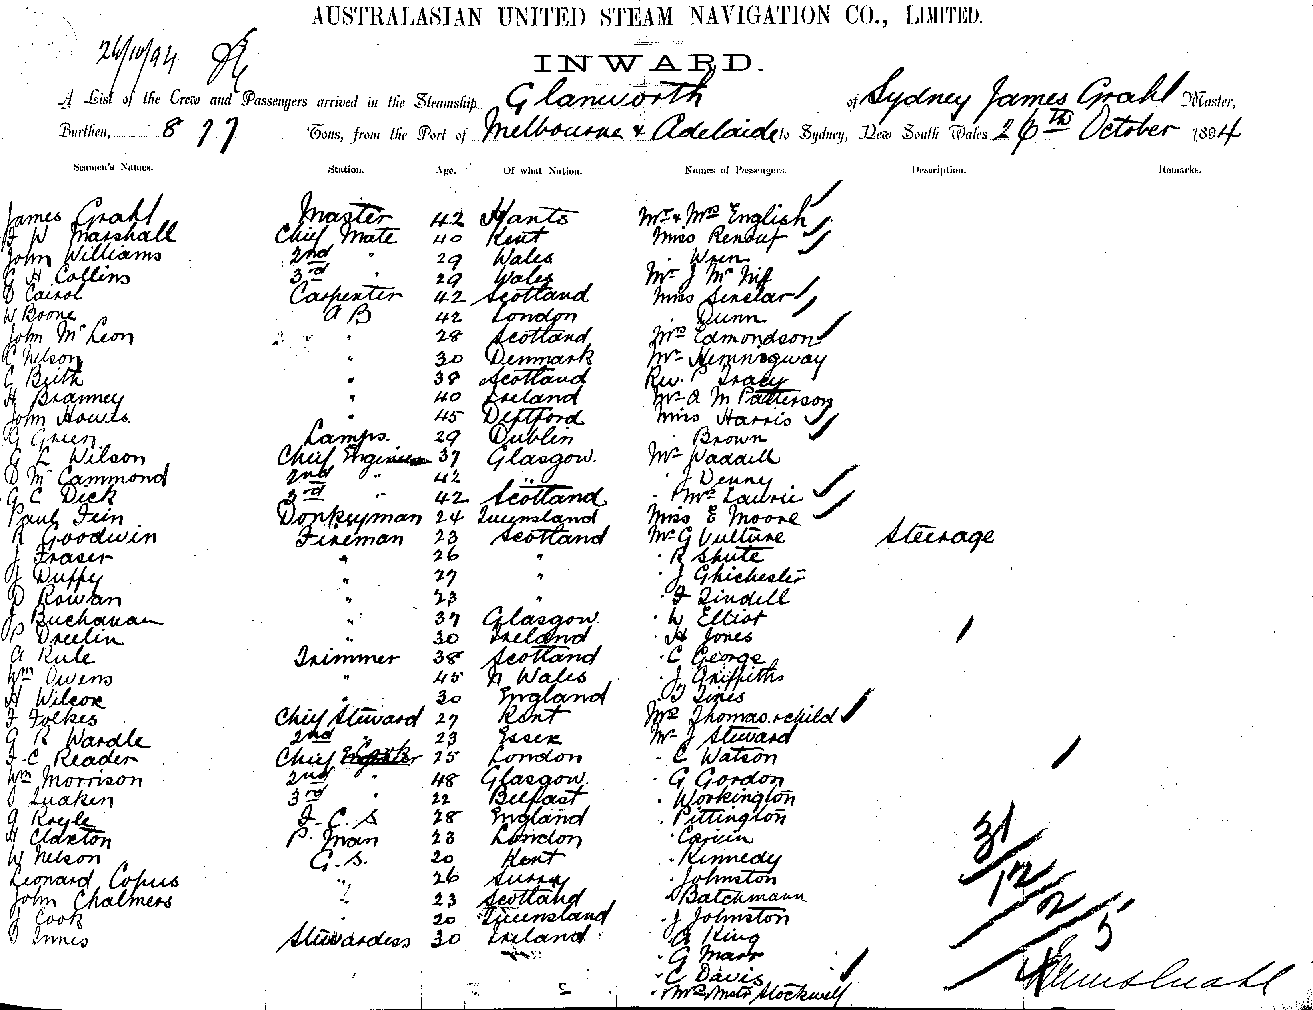 AUSTRALASIAN UNITED STEAM NAVIGATION CO., LIMITED.
26/10/94
INWARD.
A List of the Crew and Passengers arrived in the Steamship Glanworth of Sydney James Grahl Master,
Burthen, 877 Tons, from the Port of Melbourne & Adelaide to Sydney, New South Wales 26th October 1894
Seamen's Names. Station. Age. Of what Nation. Names of Passengers. Description. Remarks.
James Grahl Master 42 Hants Mr & Mrs English
F W Marshall Chief Mate 40 Kent Miss Renouf
John Williams 2nd " 29 Wales " Wren
H Collins 3rd " 29 Wales Mr J Mc
Carpenter 42 Scotland Miss Sinclair
W Boone A B 42 London " Dunn
John McLeon " 28 Scotland Mrs Edmondson
Nelson " 30 Denmark Mr Hemmingway
" 38 Scotland Rev. P Tracy
H Branney " 40 Ireland Mr A M Patterson
John Howes " 45 Deptford Miss Harris
G Green Lamps 29 Dublin " Brown
Wilson Chief Engineer 37 Glasgow Mr Waddill
McCammond 2nd " 42 " " J Denny
G C Dick 3rd " 42 Scotland " Mrs Lawrie
Paul Fein Donkeyman 24 Queensland Miss E Moore
R Goodwin Fireman 23 Scotland Mr G Vulture Steerage
J Fraser " 26 " " R Shute
J Duffy " 27 " " J Ghichester
D Rowan " 23 " " F Tindell
J Buchanan " 37 Glasgow " W Elliot
P Dreelin " 30 Ireland " H Jones
A Rule Trimmer 38 Scotland " C George
Wm Owens " 45 N Wales " J Griffiths
H Wilcox " 30 England " Tines
F Folkes Chief Steward 27 Kent Mrs Thomas & child
G R Wardle 2nd " 23 Essex Mr J Steward
F. C. Reader Chief Cook 25 London " C Watson
Wm Morrison 2nd " 48 Glasgow " G Gordon
Quaken 3rd " 22 Belfast " Workington
Royle F. C. S 28 England " Pittington
H Claxton P. Man 23 London " Carvin
W Nelson G. S. 20 Kent " Kennedy
Leonard Copus " 26 Surry " Johnston
John Chalmers " 23 Scotland " Batchmann
J Cook " 20 Queensland " J Johnston
Innes Stewardess 30 Ireland " A King
" G Marr
" C Davis
" Mrs & Mstr Stockwell
31
12
2
45
James Grahl